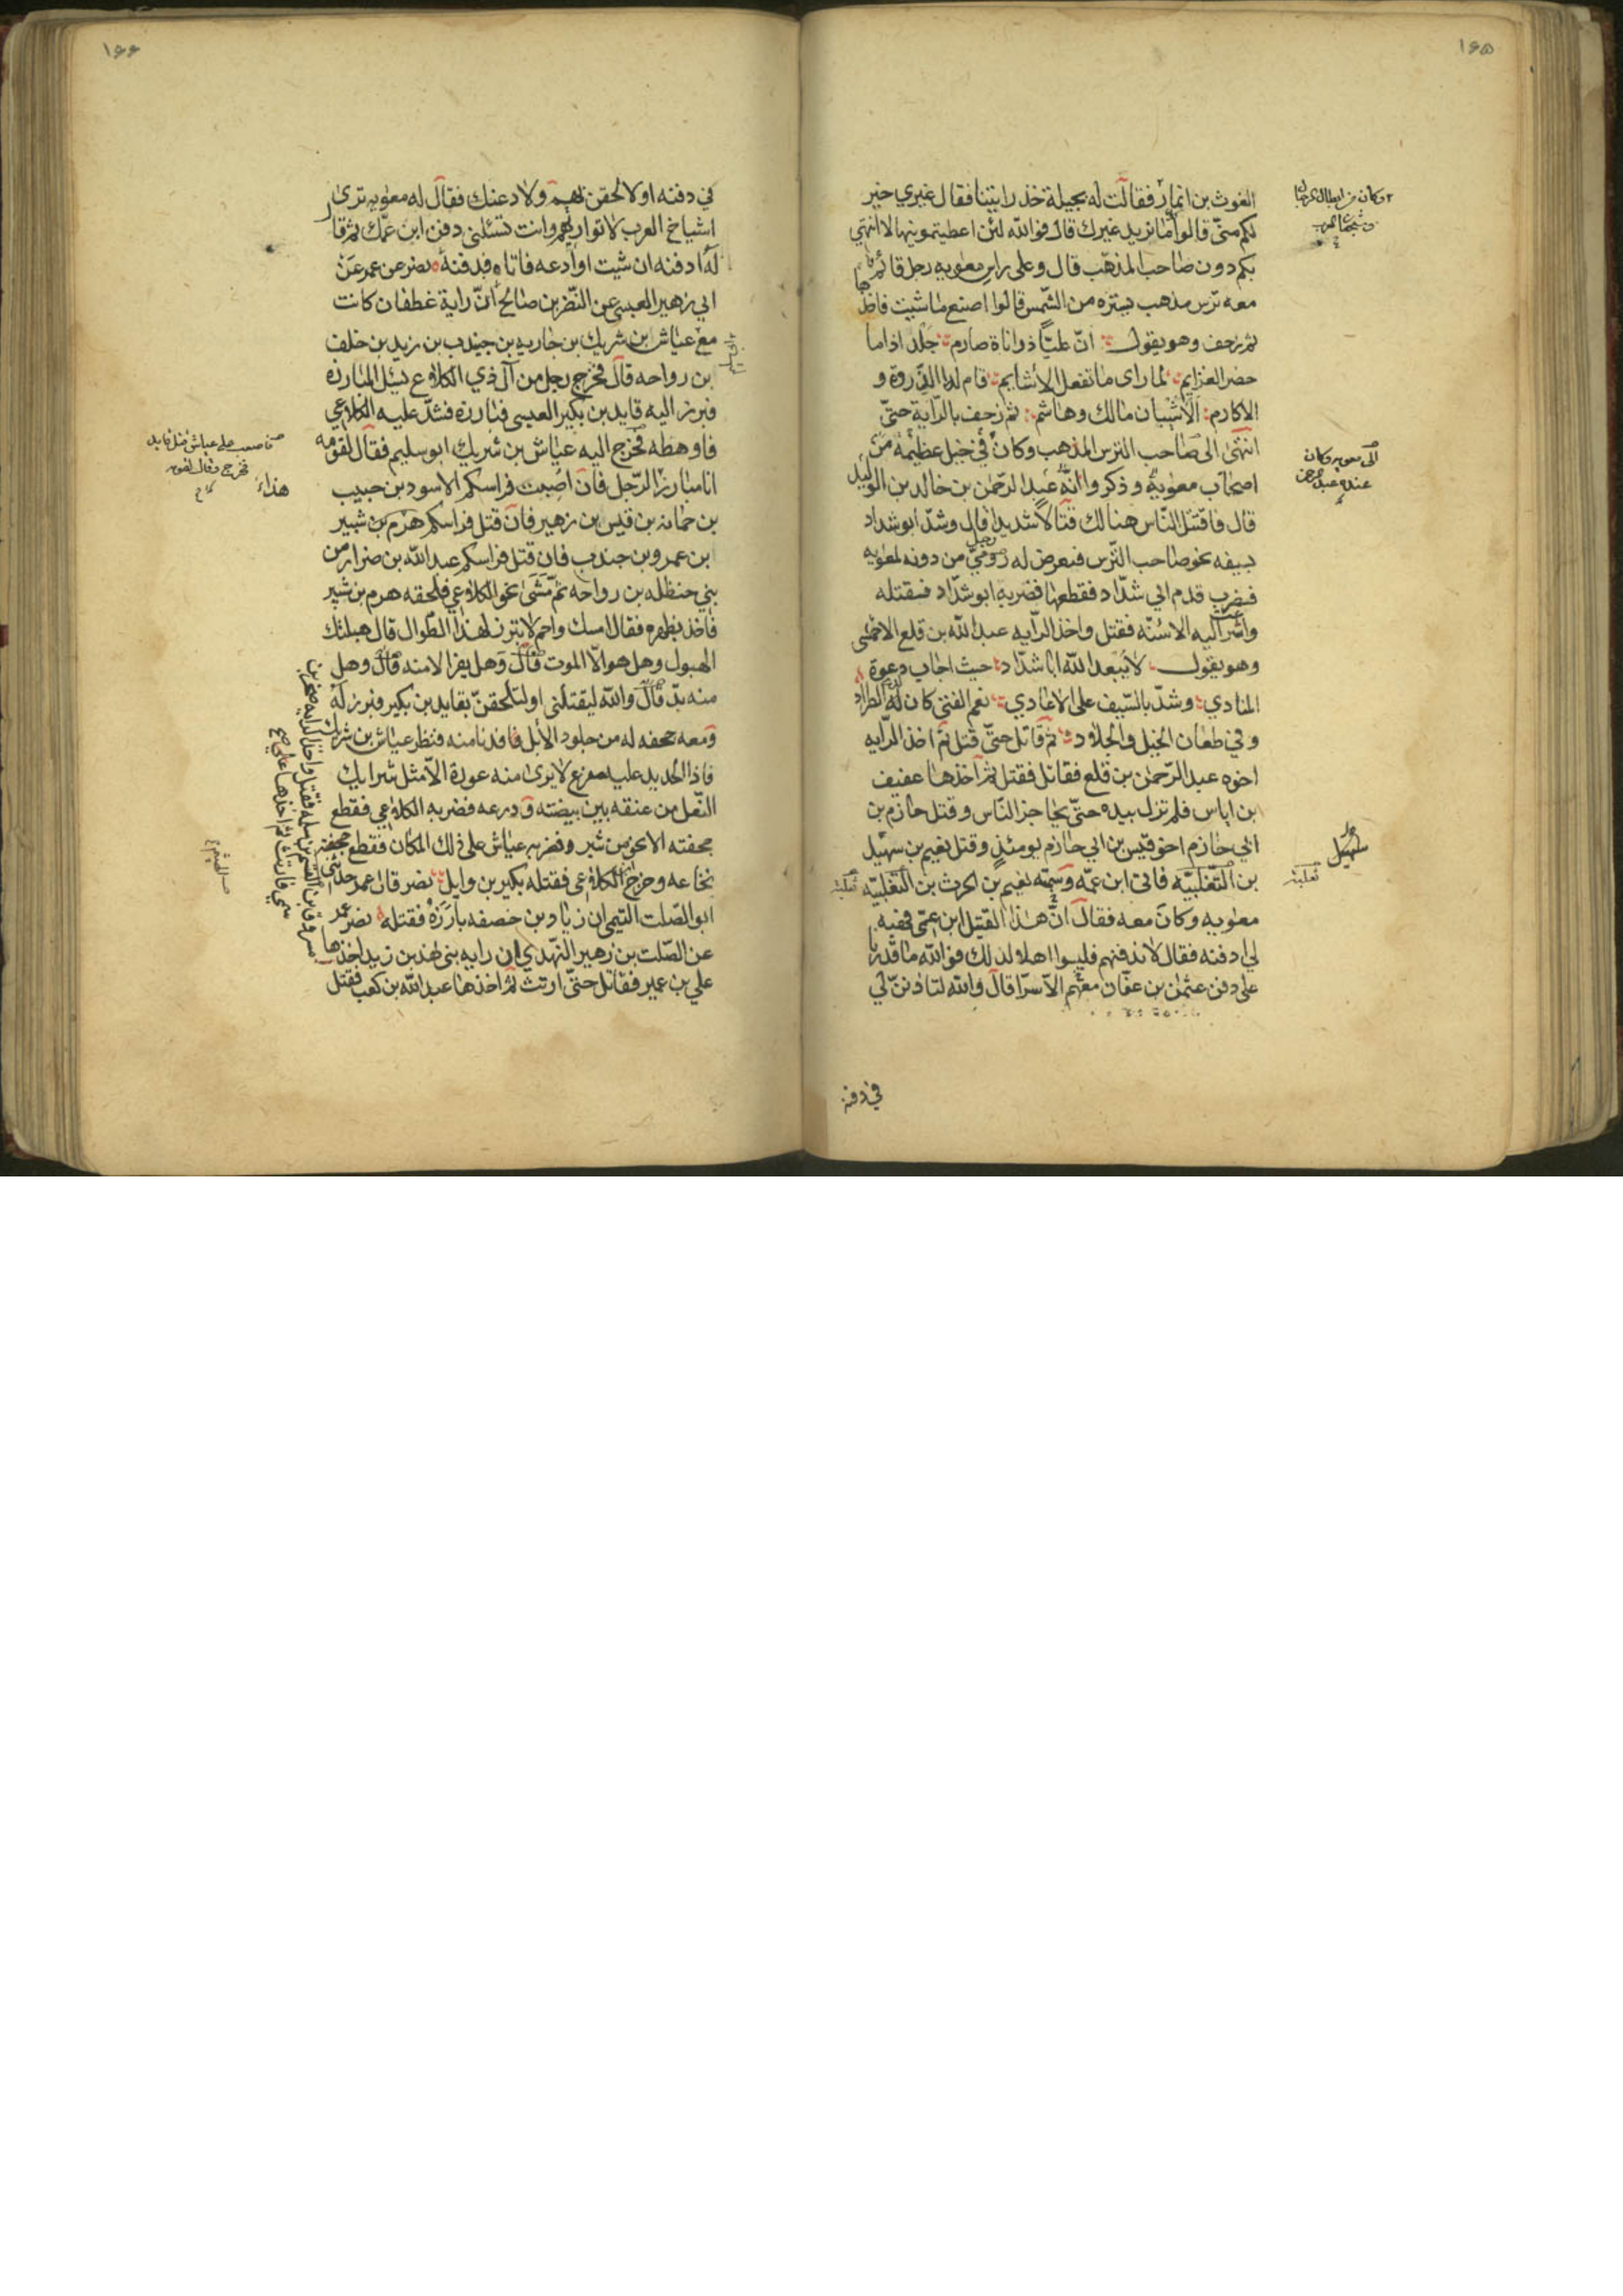 ١٦٥
الغوث بن انمار فقالت له بجيلة خذ رايتنا فقال غيري خير
لكم منّي قالوا ما نريد غيرك قال فوالله لئن اعطيتمونيها لا انتهي
بكم دون صاحب المذهب قال وعلى راس معويه رجل قائم
معه ترس مذهب يستره من الشمس قالوا اصنع ما شيت فاخذها
ثم زحف وهو يقول انّ عليّا ذو اناة صارم جلد اذا ما
حضر العزايم لما راى ما تفعل الاشايم قام له الذروة و
الاكارم الاشيبان مالك وهاشم ثم زحف بالراية حتّى
انتهى الى صاحب الترس المذهب وكان في خيل عظيمة من
اصحاب معوية وذكروا انّه عبد الرحمن بن خالد بن الوليد
قال فاقتتل النّاس هنالك قتالا شديدا قال وشدّ ابو شداد
بسيفه نحو صاحب الترس فتعرض له رومي من دونه لمعويه
فضرب قدم ابي شدّاد فقطعها فضربه ابو شدّاد فقتله
واشرعت اليه الاسنّه فقتل واخذ الرايه عبد الله بن قلع الاحمسي
وهو يقول لا يبعد الله ابا شدّاد حيث اجاب دعوة
المنادي وشدّ بالسّيف على الاعادي نعم الفتى كان لدى الطراد
وفي طعان الخيل والجلاد ثم قاتل حتّى قتل ثم اخذ الرايه
اخوه عبد الرحمن بن قلع فقاتل فقتل ثم اخذها عفيف
بن اياس فلم تزل بيده حتّى تحاجز النّاس وقتل حازم بن
ابي حازم اخو قيس بن ابي حازم يومئذ وقتل نعيم بن سهيل
بن التغلبيّه فاتى ابن عمّه وسميّه نعيم بن الحرث بن التغلبيّه
معويه وكان معه فقال انّ هذا القتيل ابن عمّي فهبه
لي ادفنه فقال لا ندفنهم فليسوا اهلا لذلك فوالله ما قدرنا
على دفن عثمن بن عفّان معهم الا سرّا قال والله لتاذننّ لي
في دفنه
سهيل
ثعلبة
١٦٦
في دفنه او لالحقن بهم ولادعنك فقال له معويه ترى
اشياخ العرب لا نواريهم وانت تسئلني دفن ابن عمّك ثم قال
له ادفنه ان شيت او ادعه فاتاه فدفنه نصر عن عمر عن
ابي زهير العبسي عن النضر بن صالح انّ راية غطفان كانت
مع عياش بن شريك بن حاريه بن جندب بن زيد بن خلف
بن رواحه قال فخرج رجل من آل ذي الكلاع يسئل المبارزة
فبرز اليه قايد بن بكير العبسي فبارزه فشدّ عليه الكلاعي
فاوهطه فخرج اليه عياش بن شريك ابو سليم فقال لقومه
انا مبارز الرّجل فان اصبت فراسكم الاسود بن حبيب
بن حمانه بن قيس بن زهير فان قتل فراسكم هرم بن شبير
ابن عمرو بن جندب فان قتل فراسكم عبد الله بن ضرار من
بني حنظله بن رواحه ثم مشى نحو الكلاعي فلحقه هرم بن شبير
فاخذ بظهره فقال امسك واحم لا تبرز لهذا الطّوال قال هبلتك
الهبول وهل هو الّا الموت قال وهل يفر الا منه قال وهل
منه بدّ قال والله ليقتلني او لتلحقنّ بقايد بن بكير فبرز له
ومعه جحفه له من جلود الابل فدنا منه فنظر عياش بن شريك
فاذا الحديد عليه مفرع لا يرى منه عورة الّا مثل شراك
النّعل من عنقه بين بيضته ودرعه فضربه الكلاعي فقطع
جحفته الا نحو من شبر وضربه عياش على ذلك المكان فقطع
نخاعه وخرج ابن الكلاعي فقتله بكير بن وايل نصر قال عمر حدثني
ابو الصّلت التيمي ان زياد بن خصفه بارزه فقتله نصر عن عمر
عن الصّلت بن زهير النّهدي ان رايه بني نهد بن زيد اخذها
علي بن عمير فقاتل حتّى ارتث ثم اخذها عبد الله بن كعب فقتل